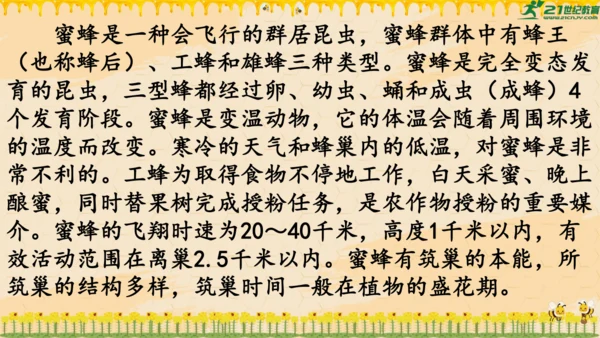 21世纪教育
www.21cnjy.com
蜜蜂是一种会飞行的群居昆虫，蜜蜂群体中有蜂王
（也称蜂后）、工蜂和雄蜂三种类型。蜜蜂是完全变态发
育的昆虫，三型蜂都经过卵、幼虫、蛹和成虫（成蜂）4
个发育阶段。蜜蜂是变温动物，它的体温会随着周围环境
的温度而改变。寒冷的天气和蜂巢内的低温，对蜜蜂是非
常不利的。工蜂为取得食物不停地工作，白天采蜜、晚上
酿蜜，同时替果树完成授粉任务，是农作物授粉的重要媒
介。蜜蜂的飞翔时速为20～40千米，高度1千米以内，有
效活动范围在离巢2.5千米以内。蜜蜂有筑巢的本能，所
筑巢的结构多样，筑巢时间一般在植物的盛花期。